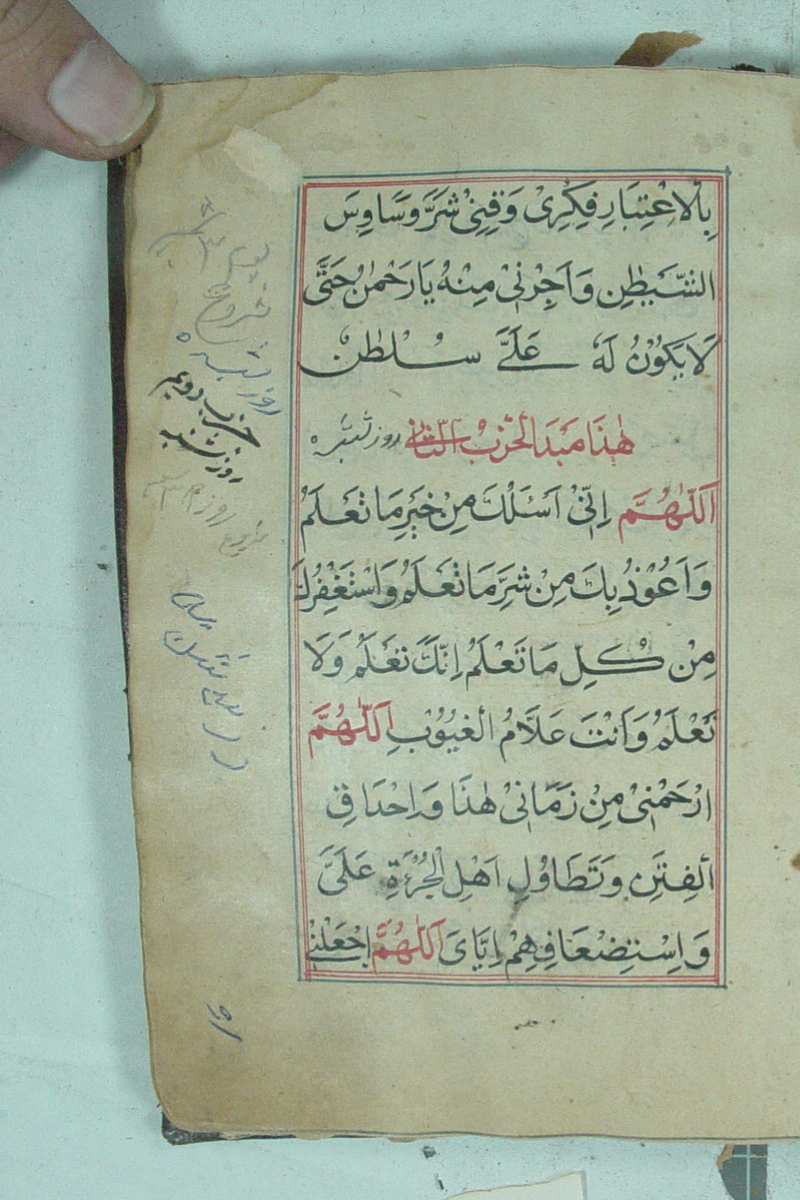 بِالْاِعْتِبَارِ فِكْرِىْ وَقِنِىْ شَرَّ وَسَاوِسَ
الشَّيْطٰنِ وَاَجِرْنِىْ مِنْهُ يَا رَحْمٰنُ حَتّٰى
لَا يَكُوْنُ لَهٗ عَلَىَّ سُلْطٰنٌ
هٰذَا مَبْدَا الْحِزْبِ الثَّانِى روز شنبه
اَللّٰهُمَّ اِنِّىْ اَسْئَلُكَ مِنْ خَيْرِ مَا تَعْلَمُ
وَاَعُوْذُ بِكَ مِنْ شَرِّ مَا تَعْلَمُ وَاَسْتَغْفِرُكَ
مِنْ كُلِّ مَا تَعْلَمُ اِنَّكَ تَعْلَمُ وَلَا
نَعْلَمُ وَاَنْتَ عَلَّامُ الْغُيُوْبِ اَللّٰهُمَّ
ارْحَمْنِىْ مِنْ زَمَانِىْ هٰذَا وَاِحْدَاقِ
الْفِتَنِ وَتَطَاوُلِ اَهْلِ الْجُرْءَةِ عَلَىَّ
وَاِسْتِضْعَافِهِمْ اِيَّاىَ اَللّٰهُمَّ اجْعَلْنِىْ
حزب دویم
روز شنبه